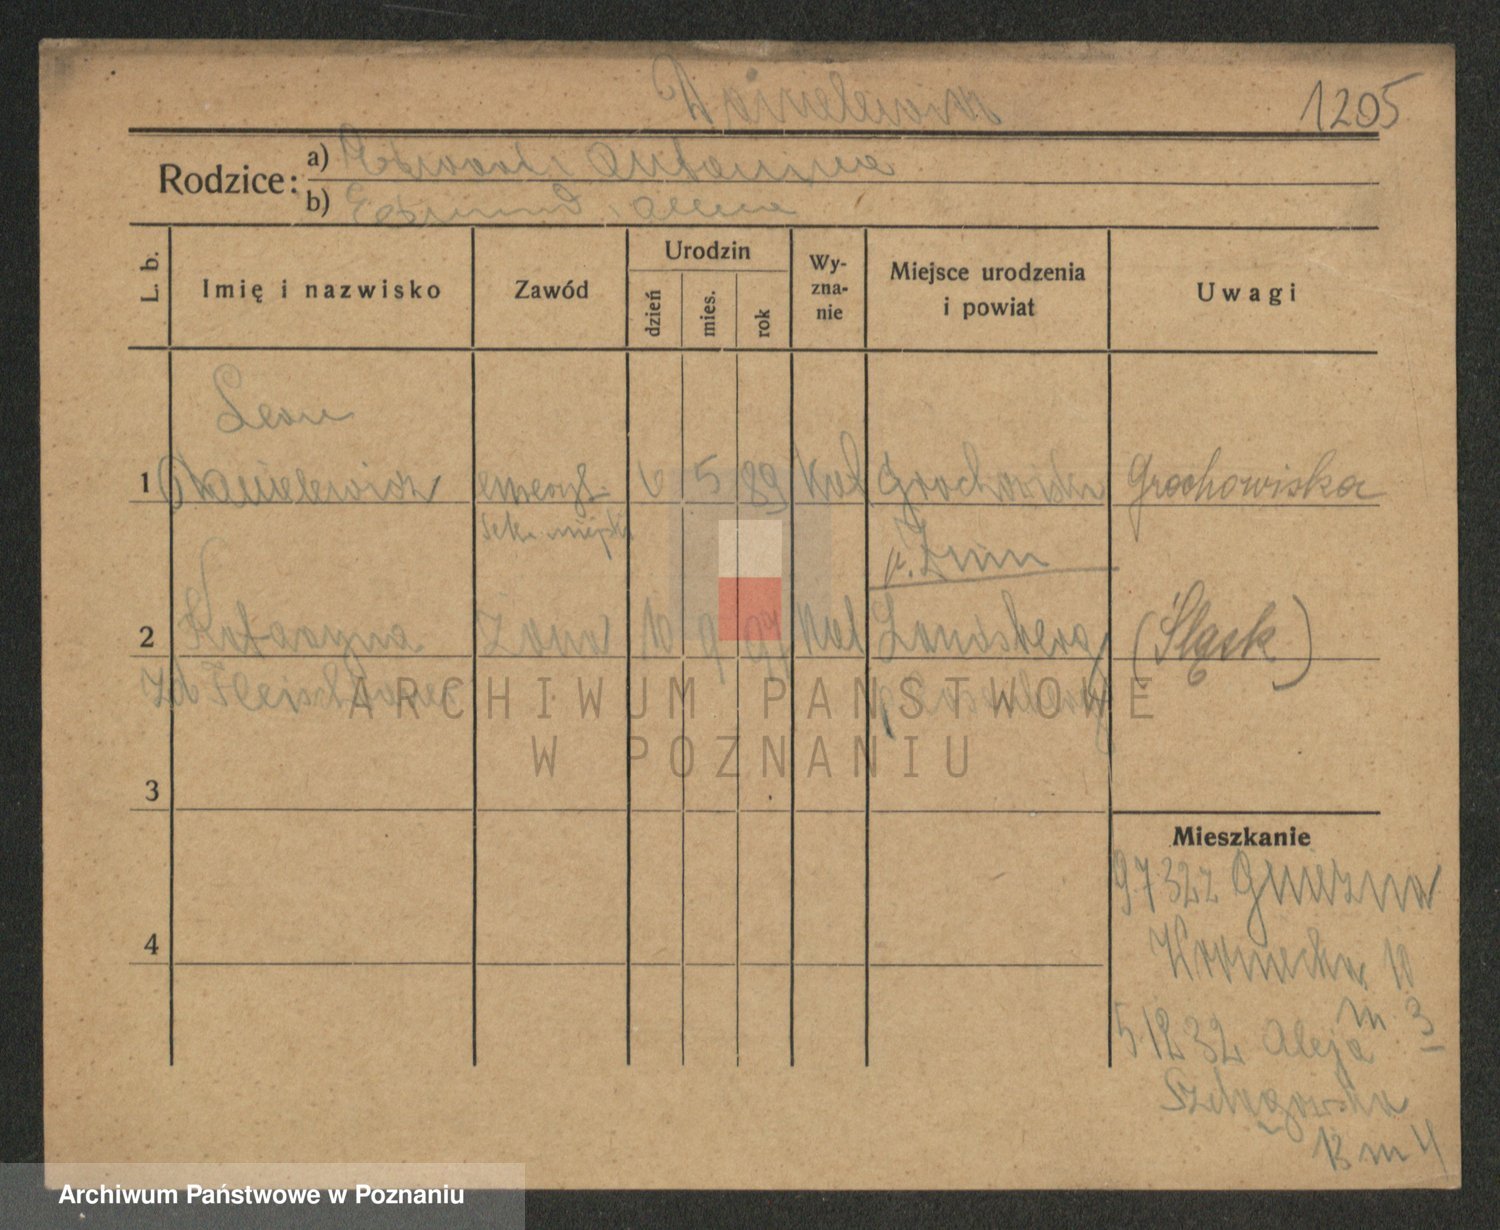 Danielewicz
1205
Rodzice:
a) Edward i Antonina
b) Edmund i
L. b.
Imię i nazwisko
Zawód
Urodzin
dzień
mies.
rok
Wy-
zna-
nie
Miejsce urodzenia
i powiat
Uwagi
Leon
1 Danielewicz emeryt 6 5 89 Kat Grochowiska Grochowiska
sekr. miejski
p. Żnin
2 Katarzyna żona 10 9 97 Kat Landsberg (Śląsk)
zd Fleischhauer
3
Mieszkanie
9 7 32 z Gniezna
4
10
m 3
5 12 32 Aleja
Szelągowska
13 m 4
ARCHIWUM PAŃSTWOWE
W POZNANIU
Archiwum Państwowe w Poznaniu